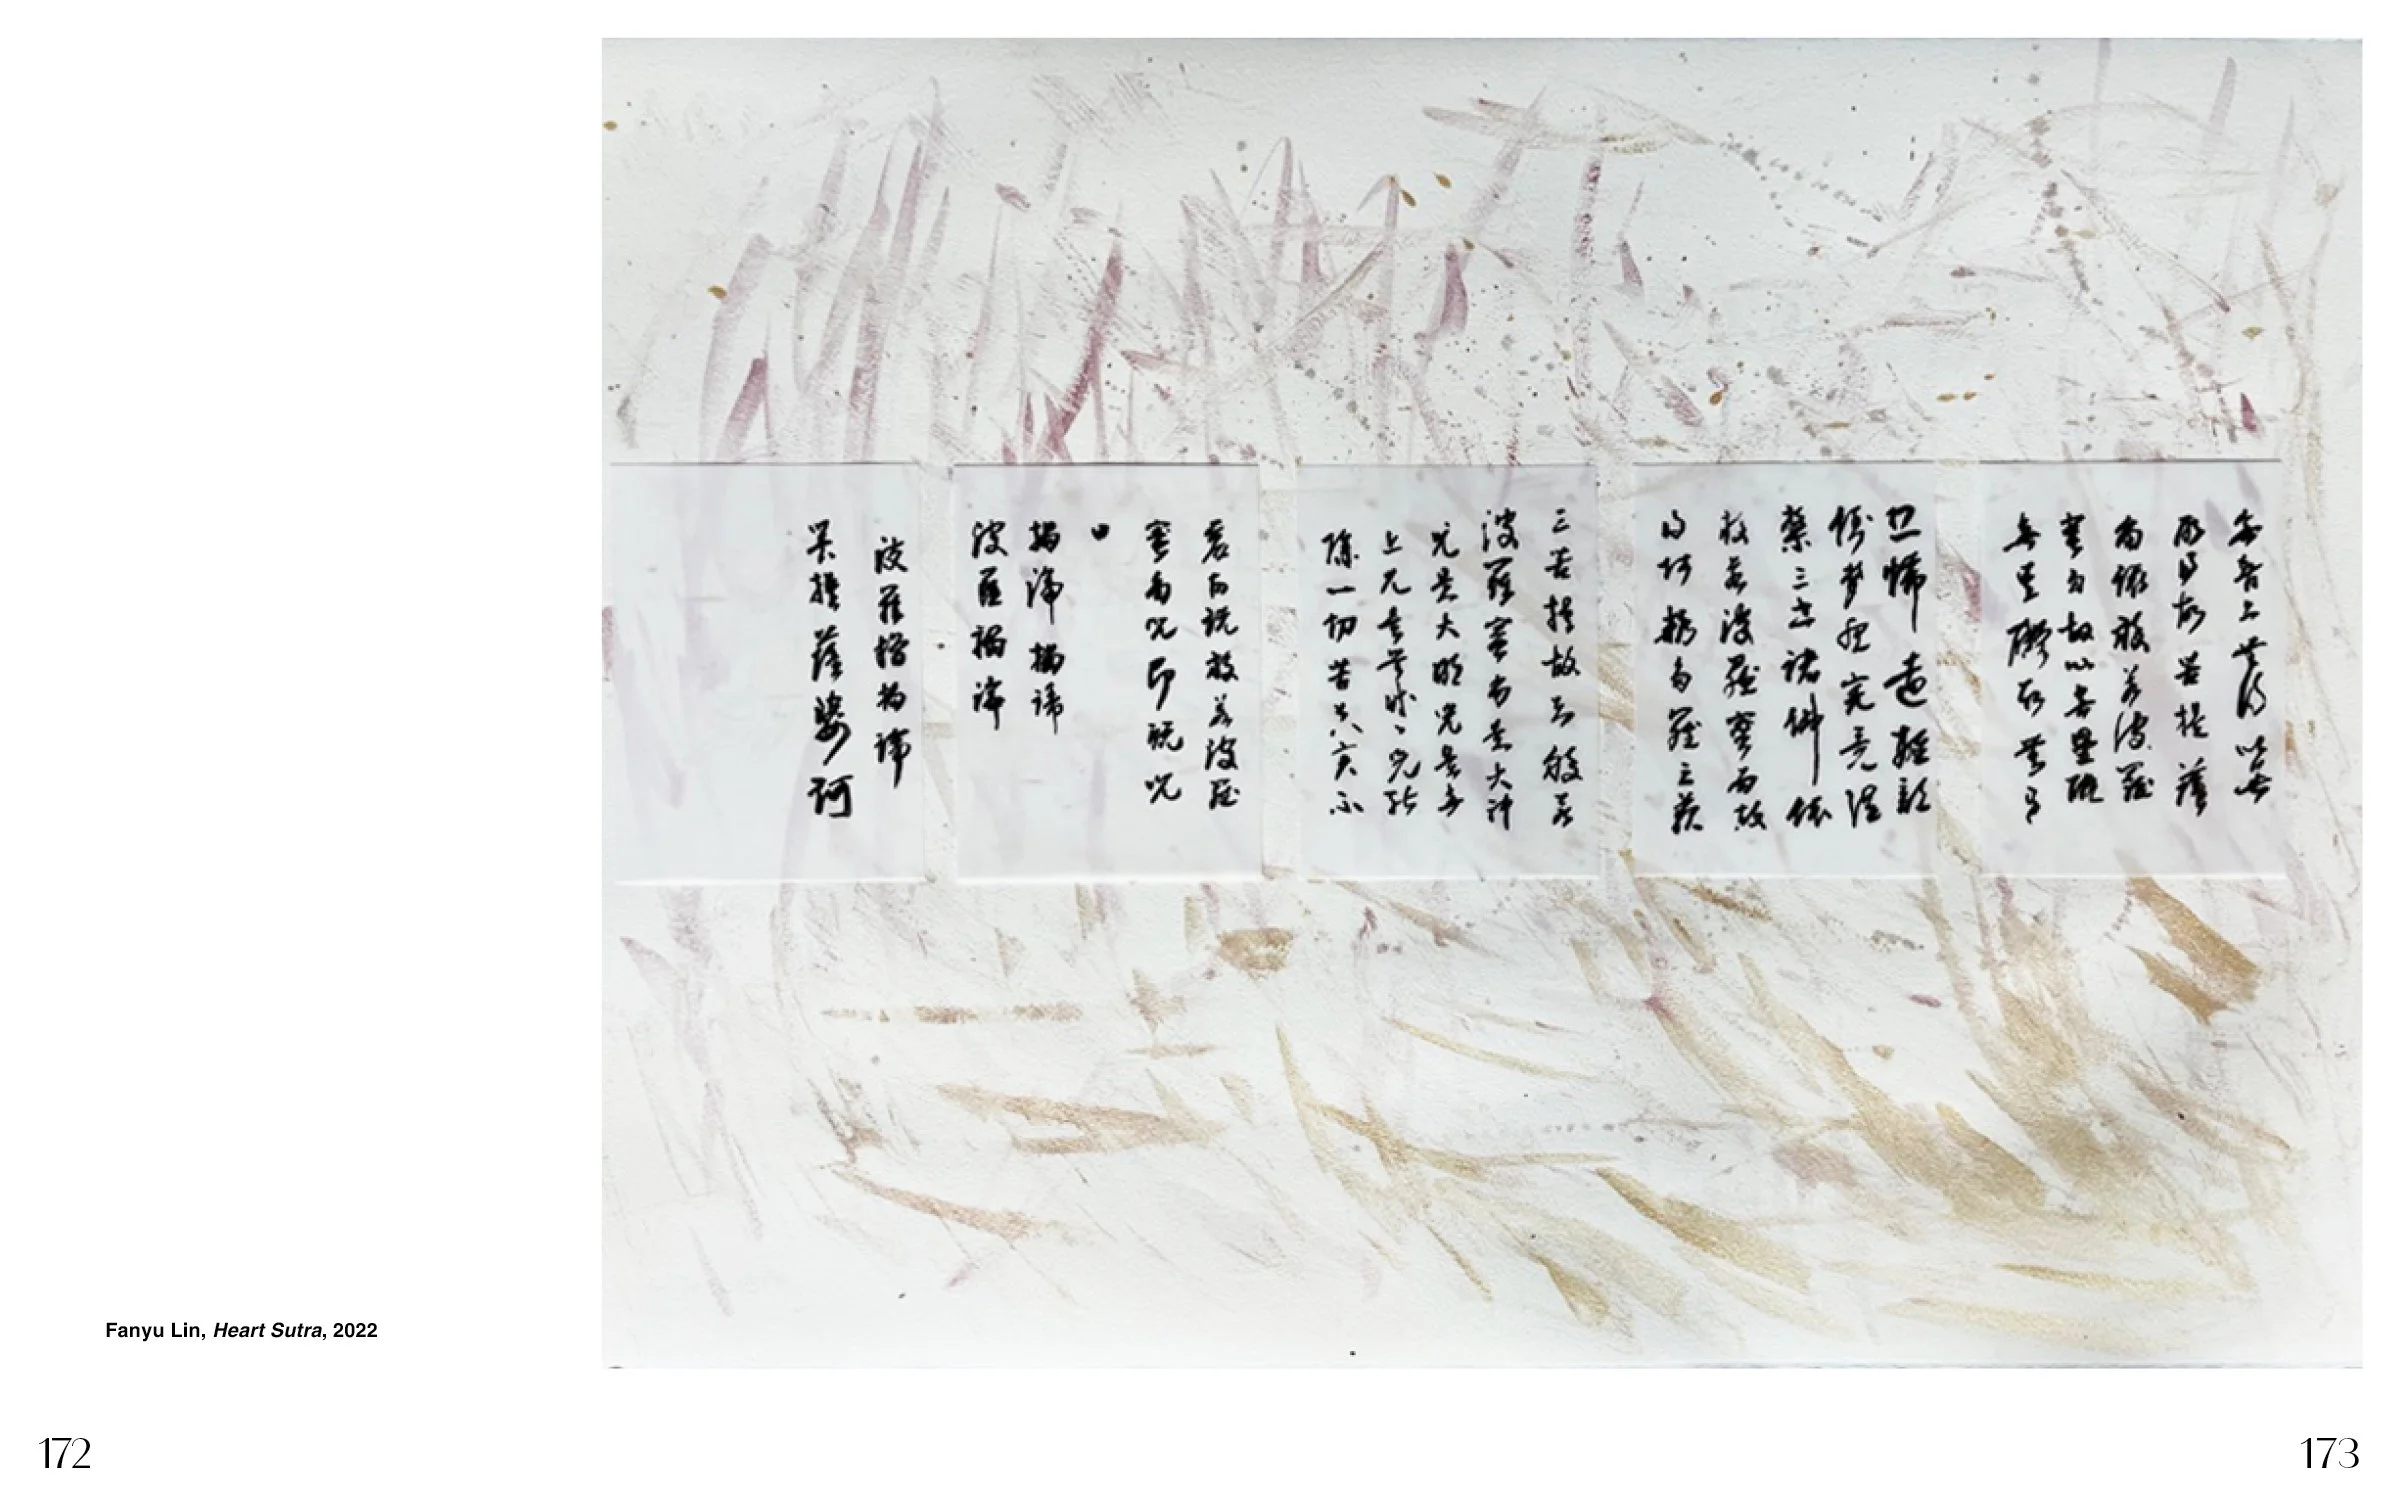 無智亦無得以無
所得故菩提薩
依般若波羅
蜜多故心無罣礙
無罣礙故無有
恐怖遠離顛
倒夢想究竟涅
槃三世諸佛依
般若波羅蜜多故
得阿耨多羅三藐
三菩提故知般若
波羅蜜多是大神
咒是大明咒是無
上咒是無等等咒能
除一切苦真實不
虛故說般若波羅
蜜多咒即說咒
曰
揭諦揭諦
波羅揭諦
波羅僧揭諦
菩提薩婆訶
Fanyu Lin, Heart Sutra, 2022
172
173